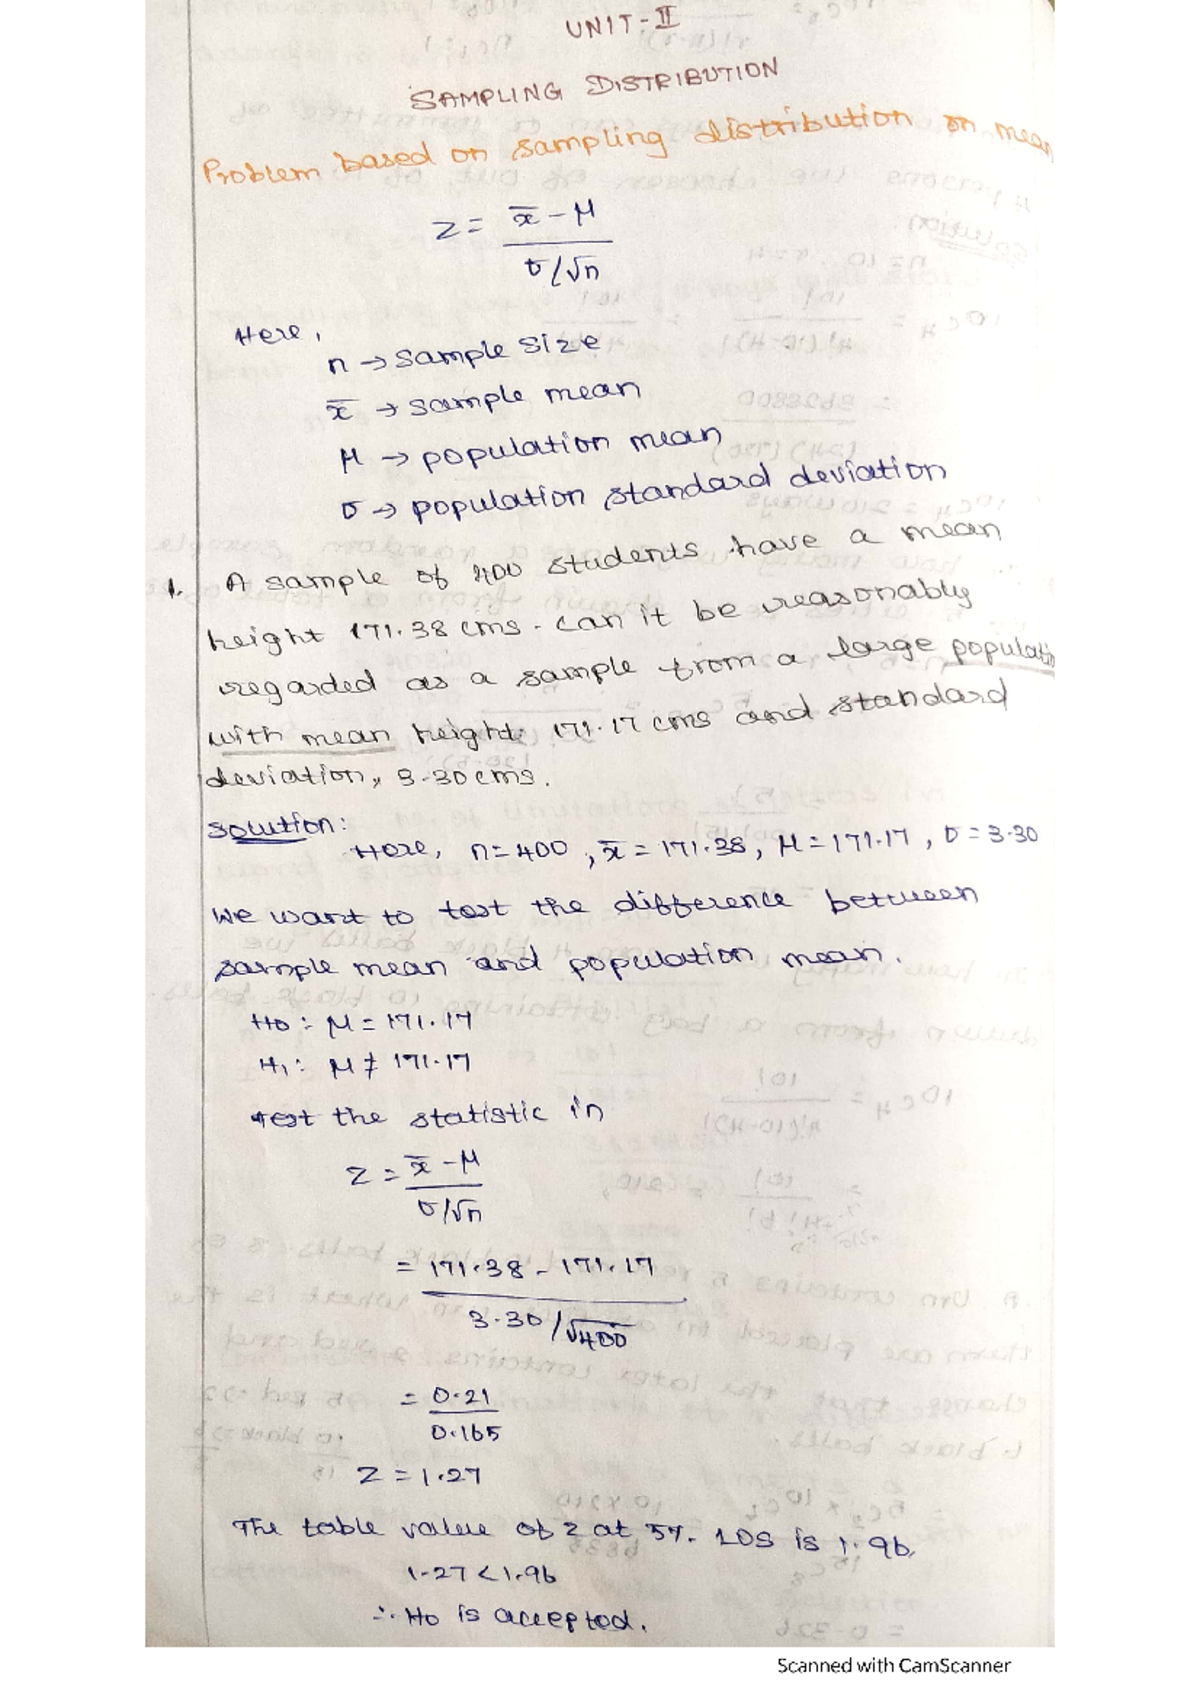 UNIT-II
SAMPLING DISTRIBUTION
Problem based on sampling distribution on mean
z = x̄ - μ
σ/√n
Here,
n → sample size
x̄ → sample mean
μ → population mean
σ → population standard deviation
1. A sample of 400 students have a mean
height 171.38 cms. can it be reasonably
regarded as a sample from a large populatio
with mean height 171.17 cms and standard
deviation, 3.30 cms.
Solution:
Here, n = 400, x̄ = 171.38, μ = 171.17, σ = 3.30
We want to test the difference between
sample mean and population mean.
H0 : μ = 171.17
H1 : μ ≠ 171.17
test the statistic in
z = x̄ - μ
σ/√n
= 171.38 - 171.17
3.30/√400
= 0.21
0.165
z = 1.27
The table value of z at 5%. LOS is 1.96.
1.27 < 1.96
∴ H0 is accepted.
Scanned with CamScanner